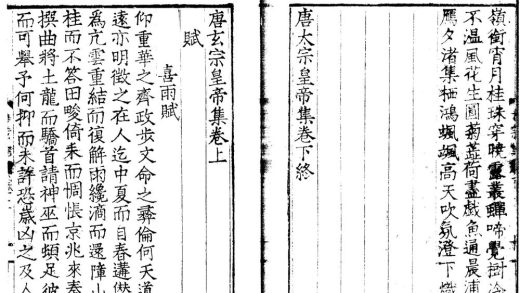 嶺銜宵月桂珠穿曉露叢蟬啼覺樹冷
不温風花生圓菊蕋荷盡戲魚通晨浦
鴈夕渚集栖鴻颯颯高天吹氛澄下熾
唐太宗皇帝集卷下終
唐玄宗皇帝集卷上
賦
喜雨賦
仰重華之齊政步文命之彝倫何天道
遠亦明徵之在人迄中夏而自春遘
為亢雲重結而復解雨纔滴而還障山
桂而不答田畯倚耒而惆悵京兆來奏
撰曲將土龍而驕首請神巫而頻足彼
而可舉予何抑而未許恐歲凶之及人